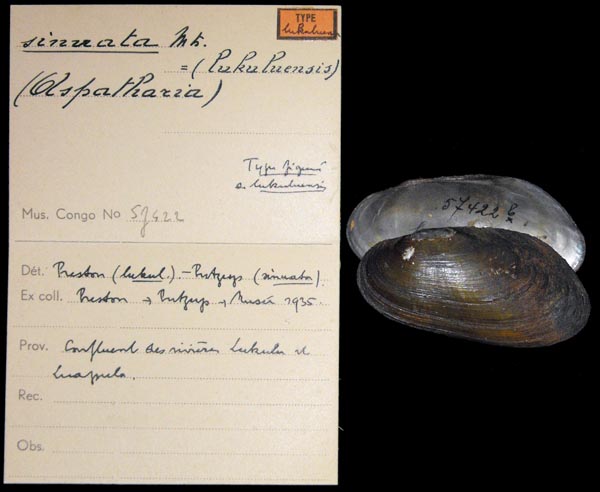 TYPE
lukuluensis
sinuata Mts.
=(lukuluensis)
(Aspatharia)
Type figuré
de lukuluensis
Mus. Congo No 57422
Dét. Preston (lukul.) - Putzeys (sinuata).
Ex coll. Preston → Putzeys → Musée 1935.
Prov. Confluent des rivières Lukulu et
Luapula.
Rec.
Obs.
57422